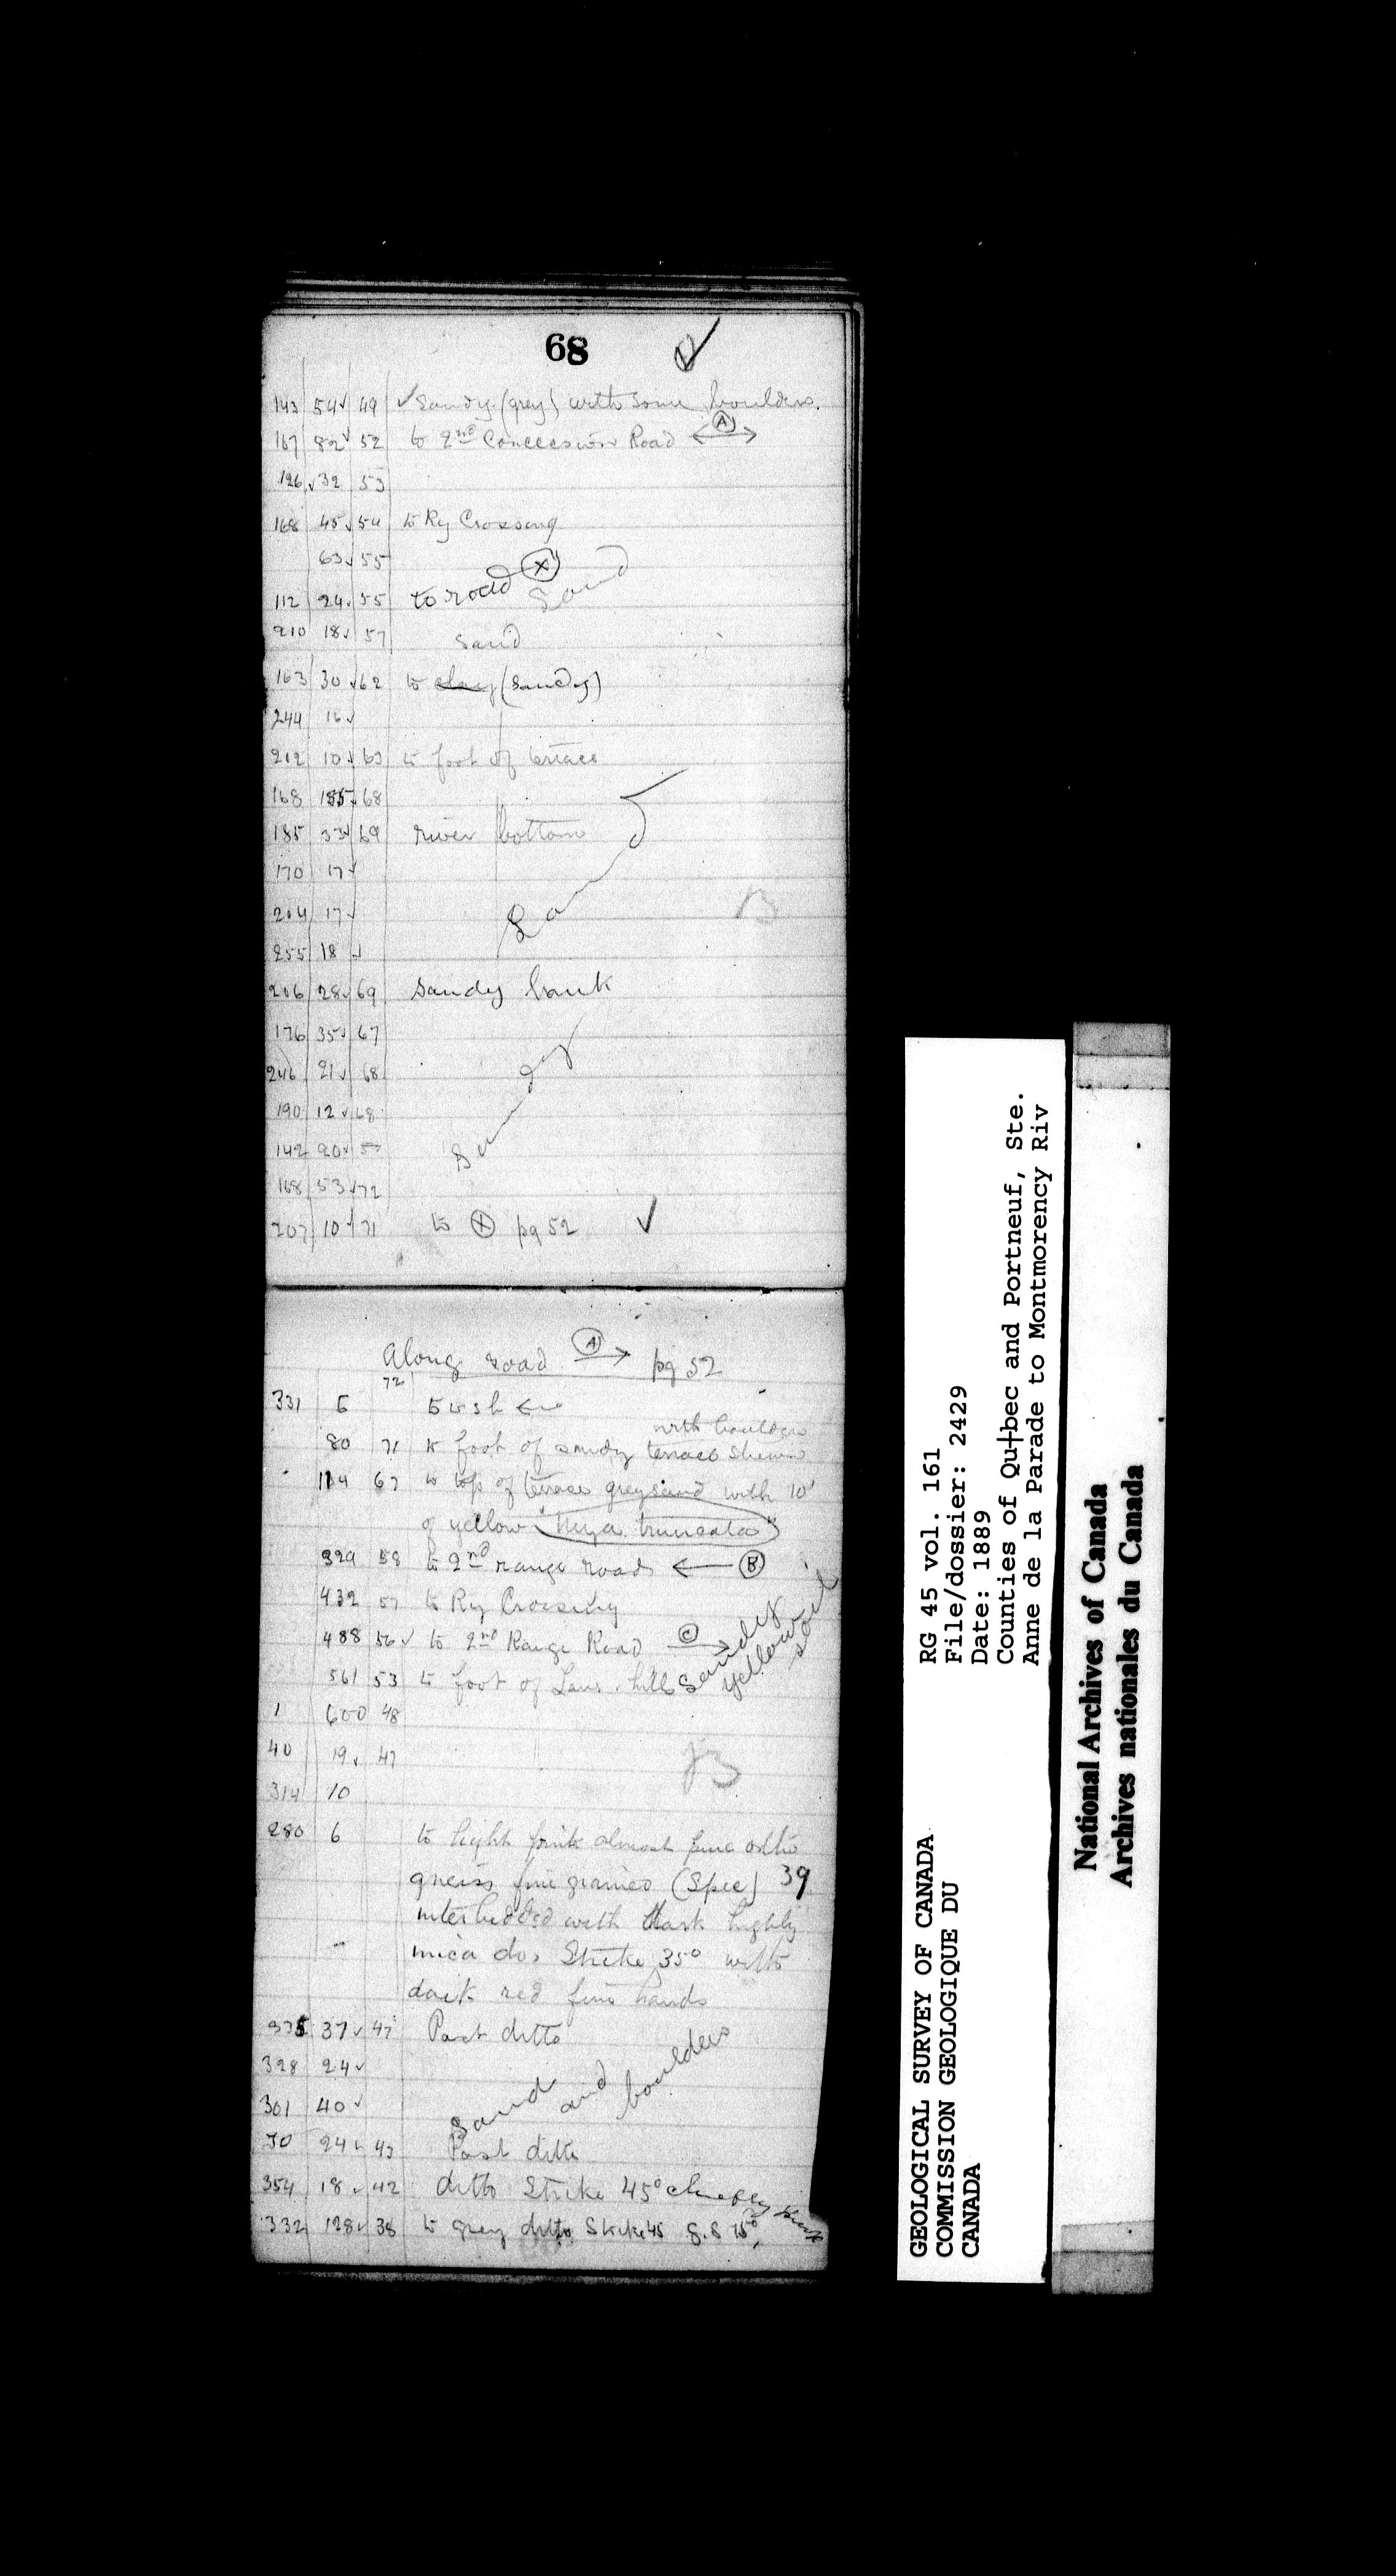 68 ✓
143 54✓ 49 ✓Sandy (grey) with some boulders.
167 82✓ 52 to 2nd Concession Road <-(A)->
126 ✓32 53
168 45✓ 54 to Ry Crossing
63✓ 55
112 24✓ 55 to road (X) Sand
210 18✓ 57 Sand
163 30✓ 62 to clay (Sandy)
244 16✓
212 10✓ 63 to foot of terrace
168 155✓ 68
185 33✓ 69 river bottom
170 17✓
204 17✓ Sand
255 18✓
206 28✓ 69 Sandy bank
176 35✓ 67
246 21✓ 68
190 12✓ 68
142 20✓ Sandy
168 53✓ 72
207 10✓ 71 to (X) pg 52 ✓
Along road (A) → pg 52
72
331 6 ←
with boulders
80 71 to foot of sandy terrace shewn
114 67 to top of terrace grey sand with 10'
of yellow "Mya truncata"
329 58 to 2nd range road ← (B)
432 57 to Ry Crossing
488 56✓ to 2nd Range Road (C) →
561 53 to foot of Laur. hills Sandy yellow soil
1 600 48
40 19✓ 47
314 10
280 6 to light pink almost pure ortho
gneiss fine grained (Spec) 39
interbedded with dark highly
mica do. Strike 35° with
dark red fine bands
335 37✓ 47 Past ditto
328 24✓
301 40✓ Sand and boulders
30 24✓ 43 Past ditto
354 18✓ 42 ditto Strike 45° chiefly
332 128✓ 38 to grey ditto Strike 45
RG 45 vol. 161
File/dossier: 2429
Date: 1889
Counties of Qu†bec and Portneuf, Ste.
Anne de la Parade to Montmorency Riv
GEOLOGICAL SURVEY OF CANADA
COMMISSION GEOLOGIQUE DU
CANADA
National Archives of Canada
Archives nationales du Canada